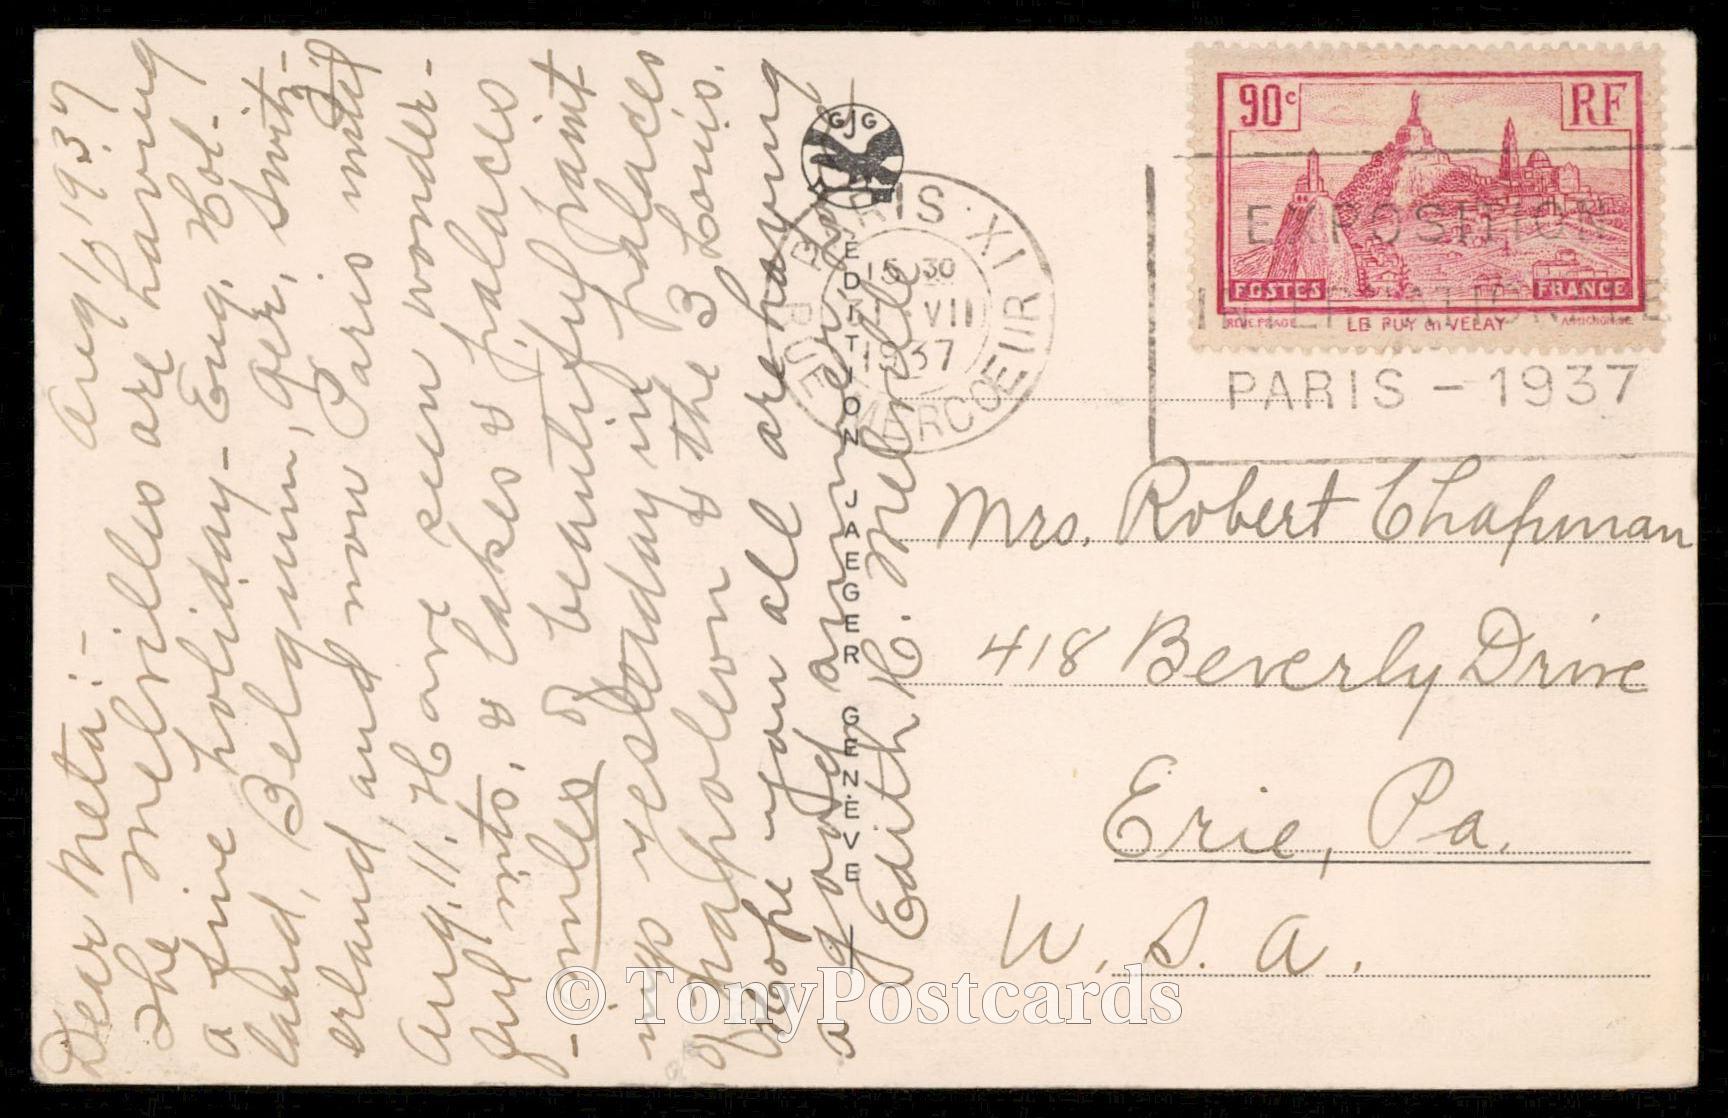 Aug 1, 1937
Dear Meta:-
The Melvilles are having
a fine holiday - Eng. Hol-
land, Belgium, Ger, Switz-
erland and now Paris until
Aug. 11. Have seen wonder-
ful mts. & lakes & palaces
- miles of beautiful paint
ings yesterday in palaces
of Napoleon & the 3 Louis.
Hope you all are having
a good summer
Edith H. Melville
GJG
EDITION JAEGER GENÈVE
PARIS · XI
15 30
31 VII
1937
RUE MERCOEUR
EXPOSITION
INTERNATIONALE
PARIS - 1937
90c RF
POSTES FRANCE
LE PUY en VELAY
Mrs. Robert Chapman
418 Beverly Drive
Erie, Pa.
U. S. A.
© TonyPostcards